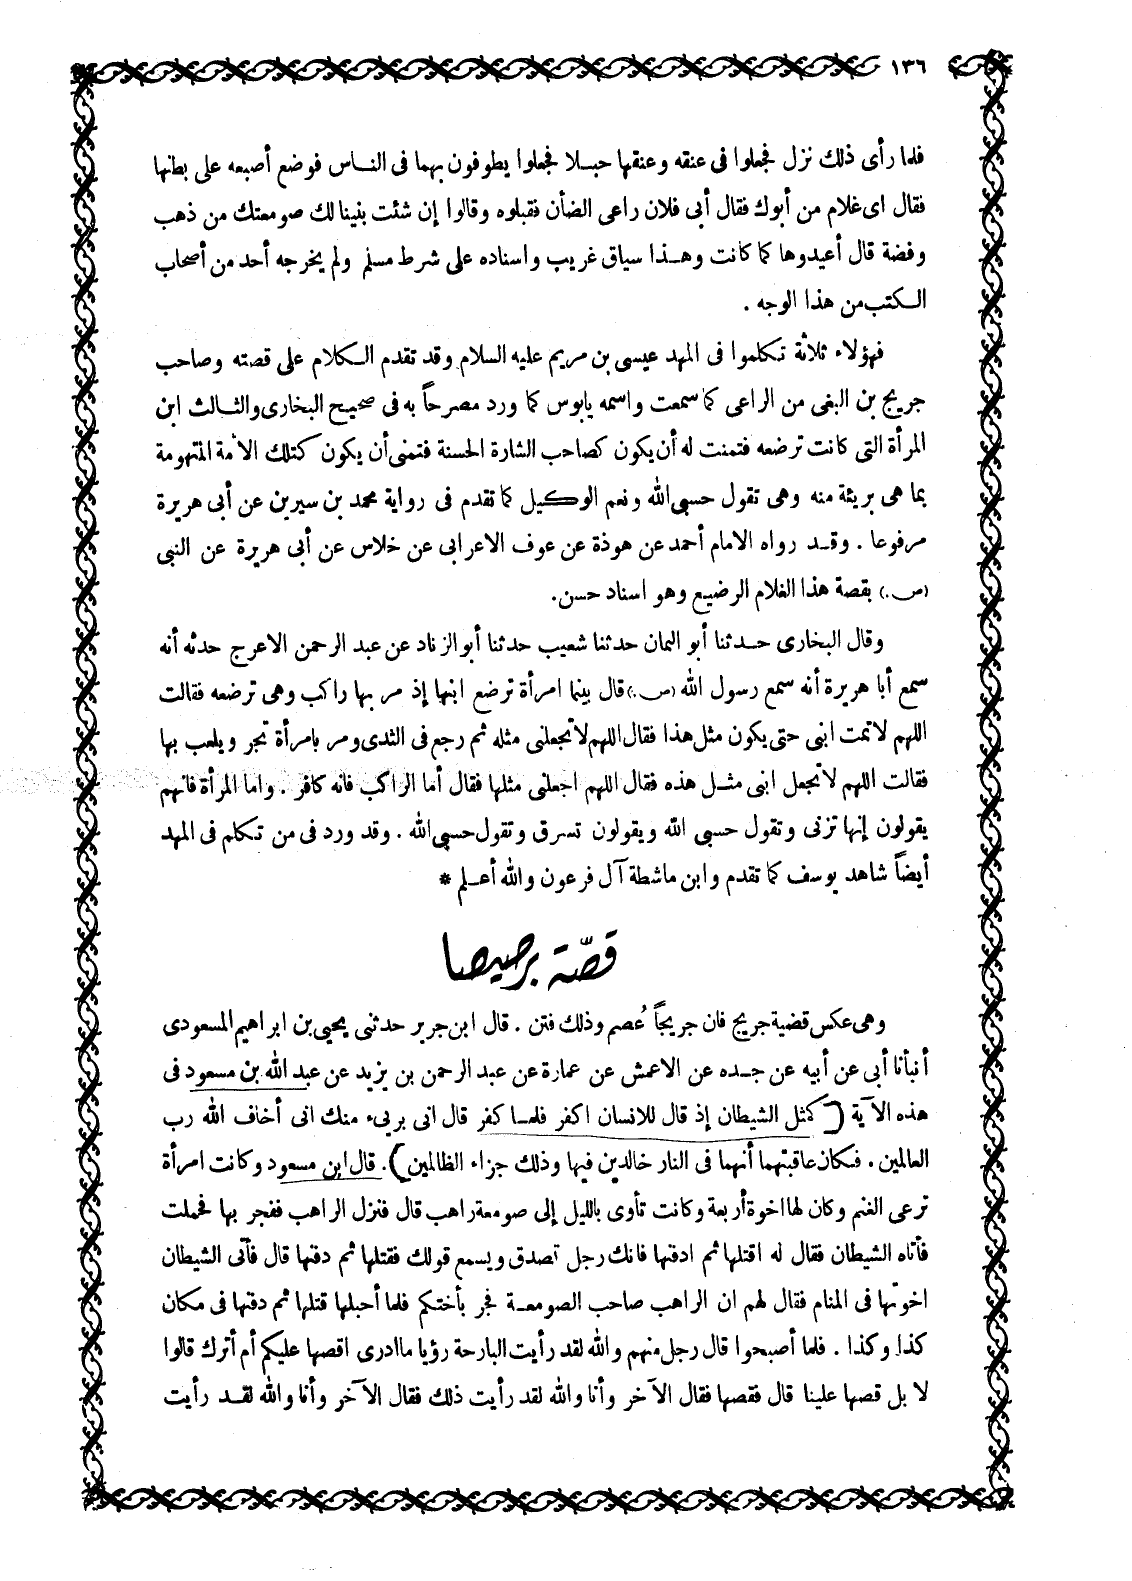 ١٣٦
فلما رأى ذلك نزل فجعلوا فى عنقه وعنقها حبلا فجعلوا يطوفون بهما فى الناس فوضع أصبعه على بطنها
فقال اى غلام من أبوك فقال أبى فلان راعى الضأن فقبلوه وقالوا إن شئت بنينا لك صومعتك من ذهب
وفضة قال أعيدوها كما كانت وهذا سياق غريب واسناده على شرط مسلم ولم يخرجه أحد من أصحاب
الكتب من هذا الوجه .
فهؤلاء ثلاثة تكلموا فى المهد عيسى بن مريم عليه السلام وقد تقدم الكلام على قصته وصاحب
جريج بن البغى من الراعى كما سمعت واسمه يابوس كما ورد مصرحاً به فى صحيح البخارى والثالث ابن
المرأة التى كانت ترضعه فتمنت له أن يكون كصاحب الشارة الحسنة فتمنى أن يكون كتلك الأمة المتهومة
بما هى بريئة منه وهى تقول حسبى الله ونعم الوكيل كما تقدم فى رواية محمد بن سيرين عن أبى هريرة
مرفوعا . وقد رواه الامام أحمد عن هوذة عن عوف الاعرابى عن خلاس عن أبى هريرة عن النبى
(ص.) بقصة هذا الغلام الرضيع وهو اسناد حسن.
وقال البخارى حدثنا أبو اليمان حدثنا شعيب حدثنا أبو الزناد عن عبد الرحمن الاعرج حدثه أنه
سمع أبا هريرة أنه سمع رسول الله (ص.) قال بينما امرأة ترضع ابنها إذ مر بها راكب وهى ترضعه فقالت
اللهم لا تمت ابنى حتى يكون مثل هذا فقال اللهم لا تجعلنى مثله ثم رجع فى الثدى ومر بامرأة تجر ويلعب بها
فقالت اللهم لا تجعل ابنى مثل هذه فقال اللهم اجعلنى مثلها فقال أما الراكب فانه كافر . واما المرأة فانهم
يقولون إنها تزنى وتقول حسبى الله ويقولون تسرق وتقول حسبى الله . وقد ورد فى من تكلم فى المهد
أيضاً شاهد يوسف كما تقدم وابن ماشطة آل فرعون والله أعلم *
قصّة برصيصا
وهى عكس قضية جريج فان جريجاً عُصم وذلك فتن . قال ابن جرير حدثنى يحيى بن ابراهيم المسعودى
أنبأنا أبى عن أبيه عن جده عن الاعمش عن عمارة عن عبد الرحمن بن يزيد عن عبد الله بن مسعود فى
هذه الآية ( كمثل الشيطان إذ قال للانسان اكفر فلما كفر قال انى برىء منك انى أخاف الله رب
العالمين . فكان عاقبتهما أنهما فى النار خالدين فيها وذلك جزاء الظالمين ) . قال ابن مسعود وكانت امرأة
ترعى الغنم وكان لها اخوة أربعة وكانت تأوى بالليل إلى صومعة راهب قال فنزل الراهب ففجر بها فحملت
فأتاه الشيطان فقال له اقتلها ثم ادفنها فانك رجل تصدق ويسمع قولك فقتلها ثم دفنها قال فأتى الشيطان
اخوتها فى المنام فقال لهم ان الراهب صاحب الصومعة فجر بأختكم فلما أحبلها قتلها ثم دفنها فى مكان
كذا وكذا . فلما أصبحوا قال رجل منهم والله لقد رأيت البارحة رؤيا ما ادرى اقصها عليكم أم أترك قالوا
لا بل قصها علينا قال فقصها فقال الآخر وأنا والله لقد رأيت ذلك فقال الآخر وأنا والله لقد رأيت